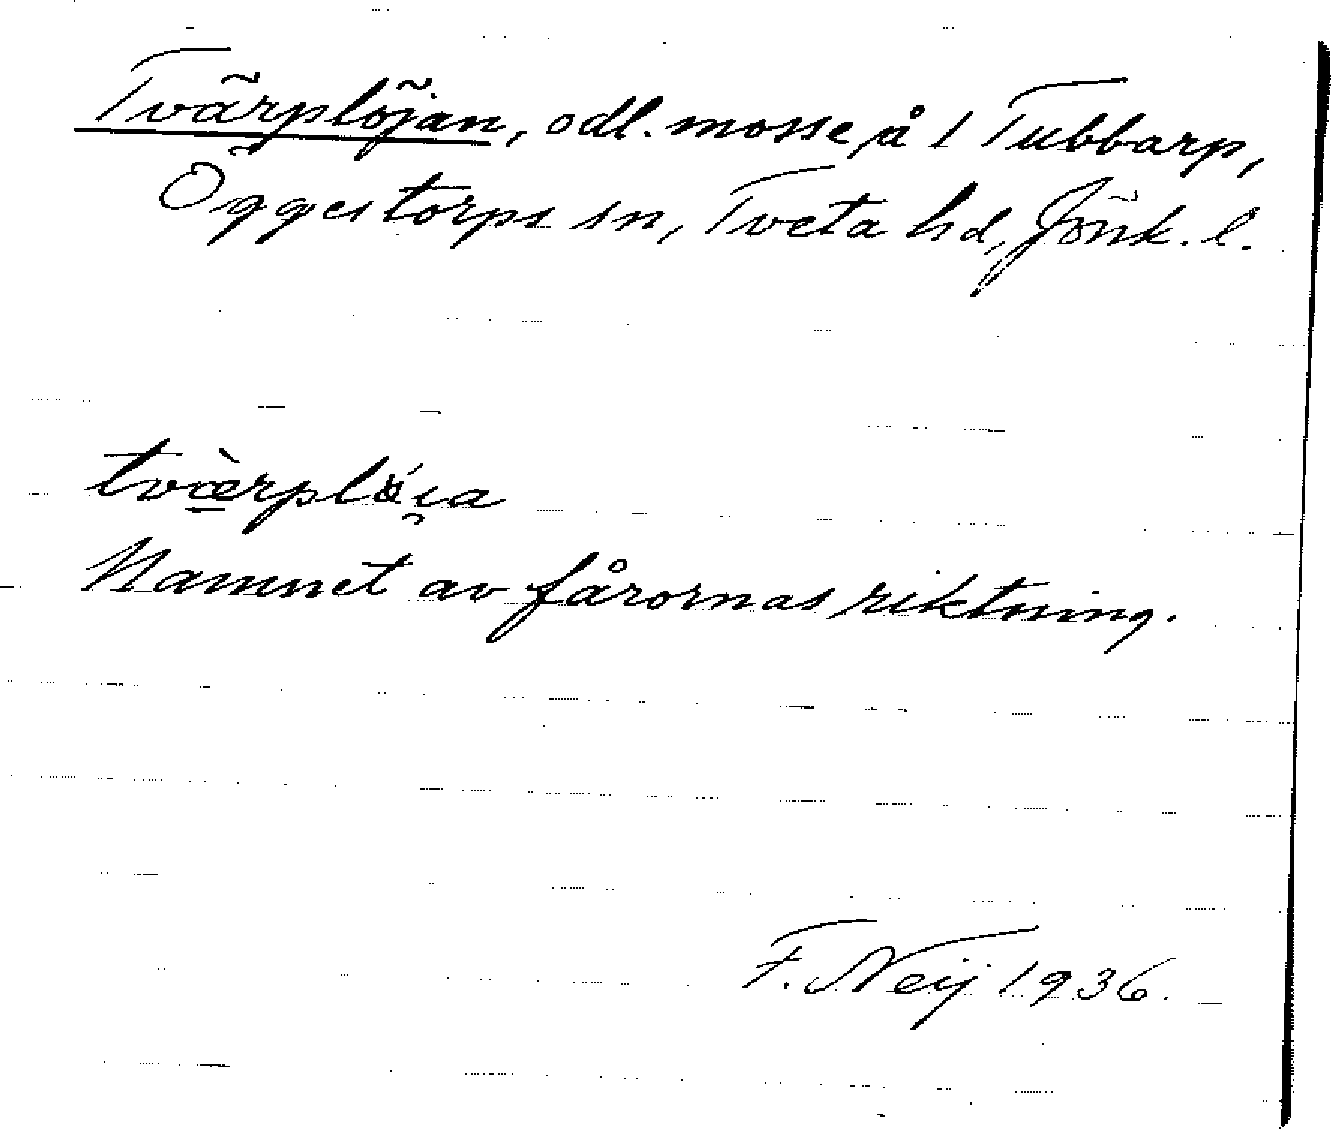 Tvärplöjan, odl. mosse, å 1 Tubbarp,
Öggestorps sn, Tveta hd, Jönk. l.
tvæ̀rplǿi̯a
Namnet av fårornas riktning.
F. Neij 1936.